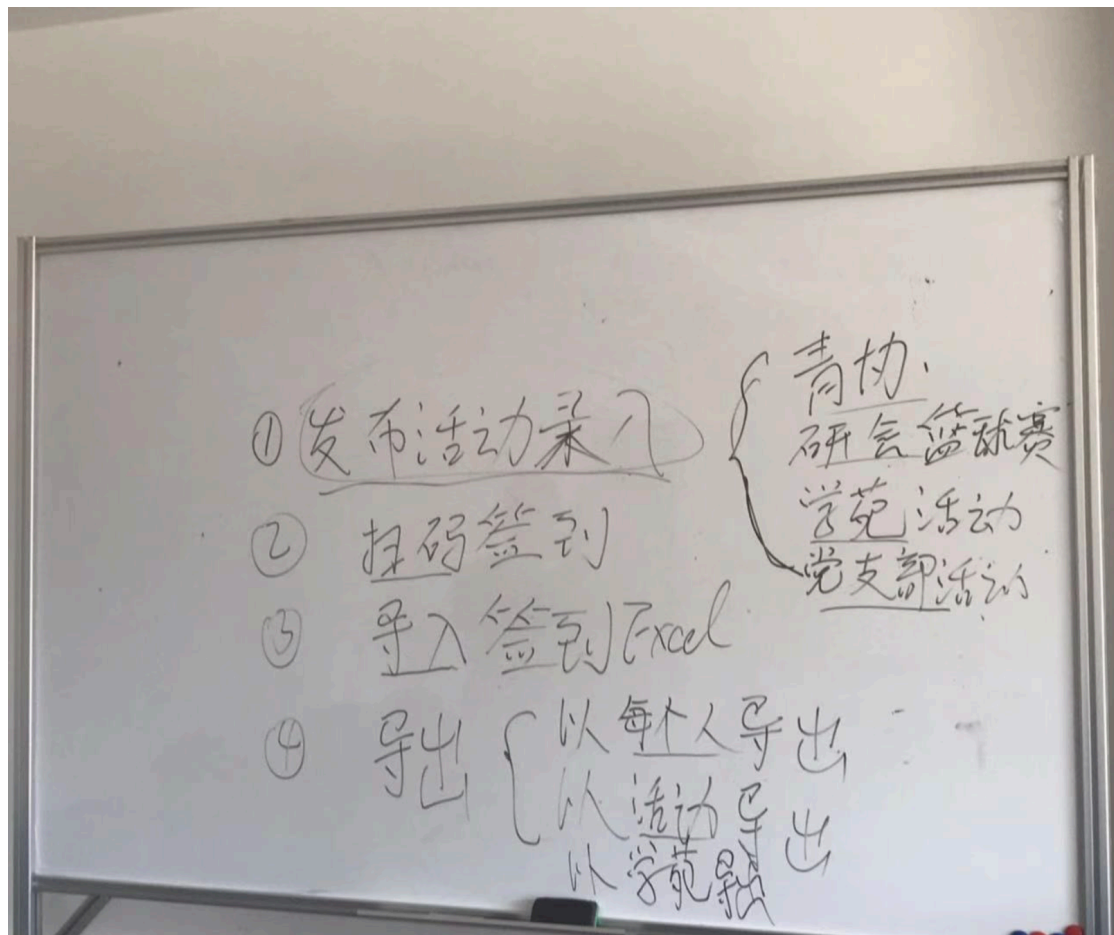 ①发布活动录入
青协、
研会篮球赛
学苑活动
党支部活动
②扫码签到
③导入签到Excel
④导出
以每个人导出
以活动导出
以学苑导出